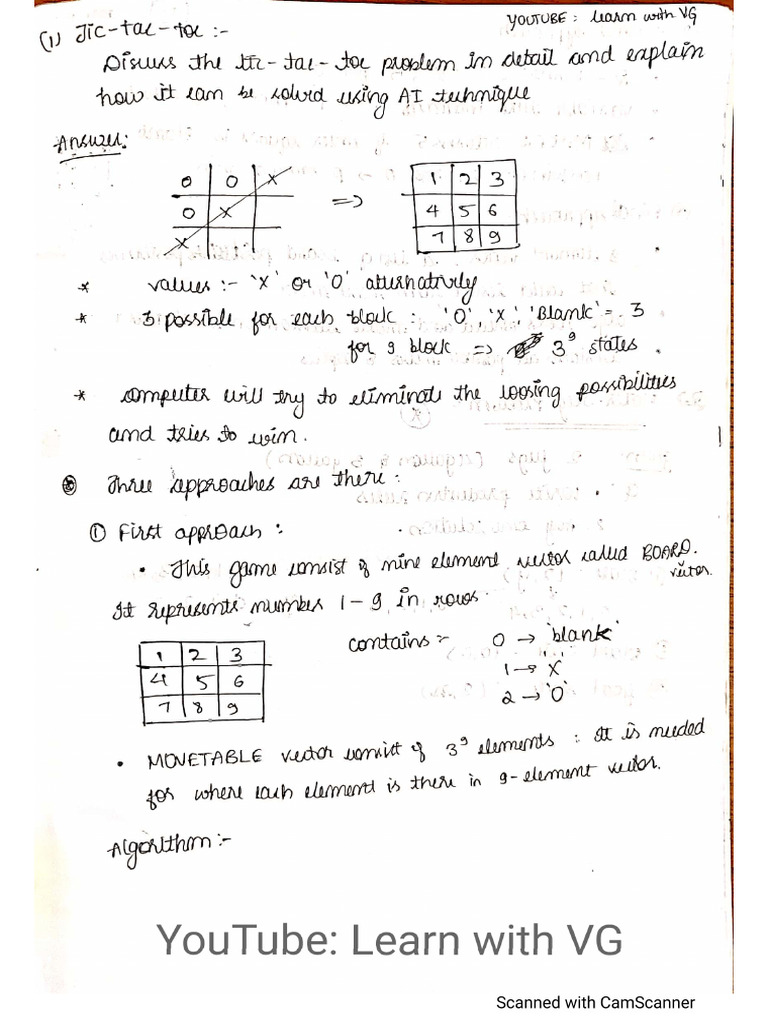 YOUTUBE: Learn with VG
(1) Tic-tac-toe :-
Discuss the tic-tac-toe problem in detail and explain
how it can be solved using AI technique
Answer:
0 0 X
0 X
X
=>
1 2 3
4 5 6
7 8 9
* values :- 'X' or 'O' alternatively
* 3 possible for each block : 'O', 'X' 'Blank' = 3
for 9 block => 3^9 states
* computer will try to eliminate the loosing possibilities
and tries to win.
Three approaches are there :
① First approach :
• This game consist of nine element vector called BOARD.
vector.
It represents number 1-9 in rows.
1 2 3
4 5 6
7 8 9
contains :- 0 → 'blank'
1 → X'
2 → 'O'
• MOVETABLE vector consist of 3^9 elements : It is needed
for where each element is there in 9-element vector.
Algorithm :-
YouTube: Learn with VG
Scanned with CamScanner